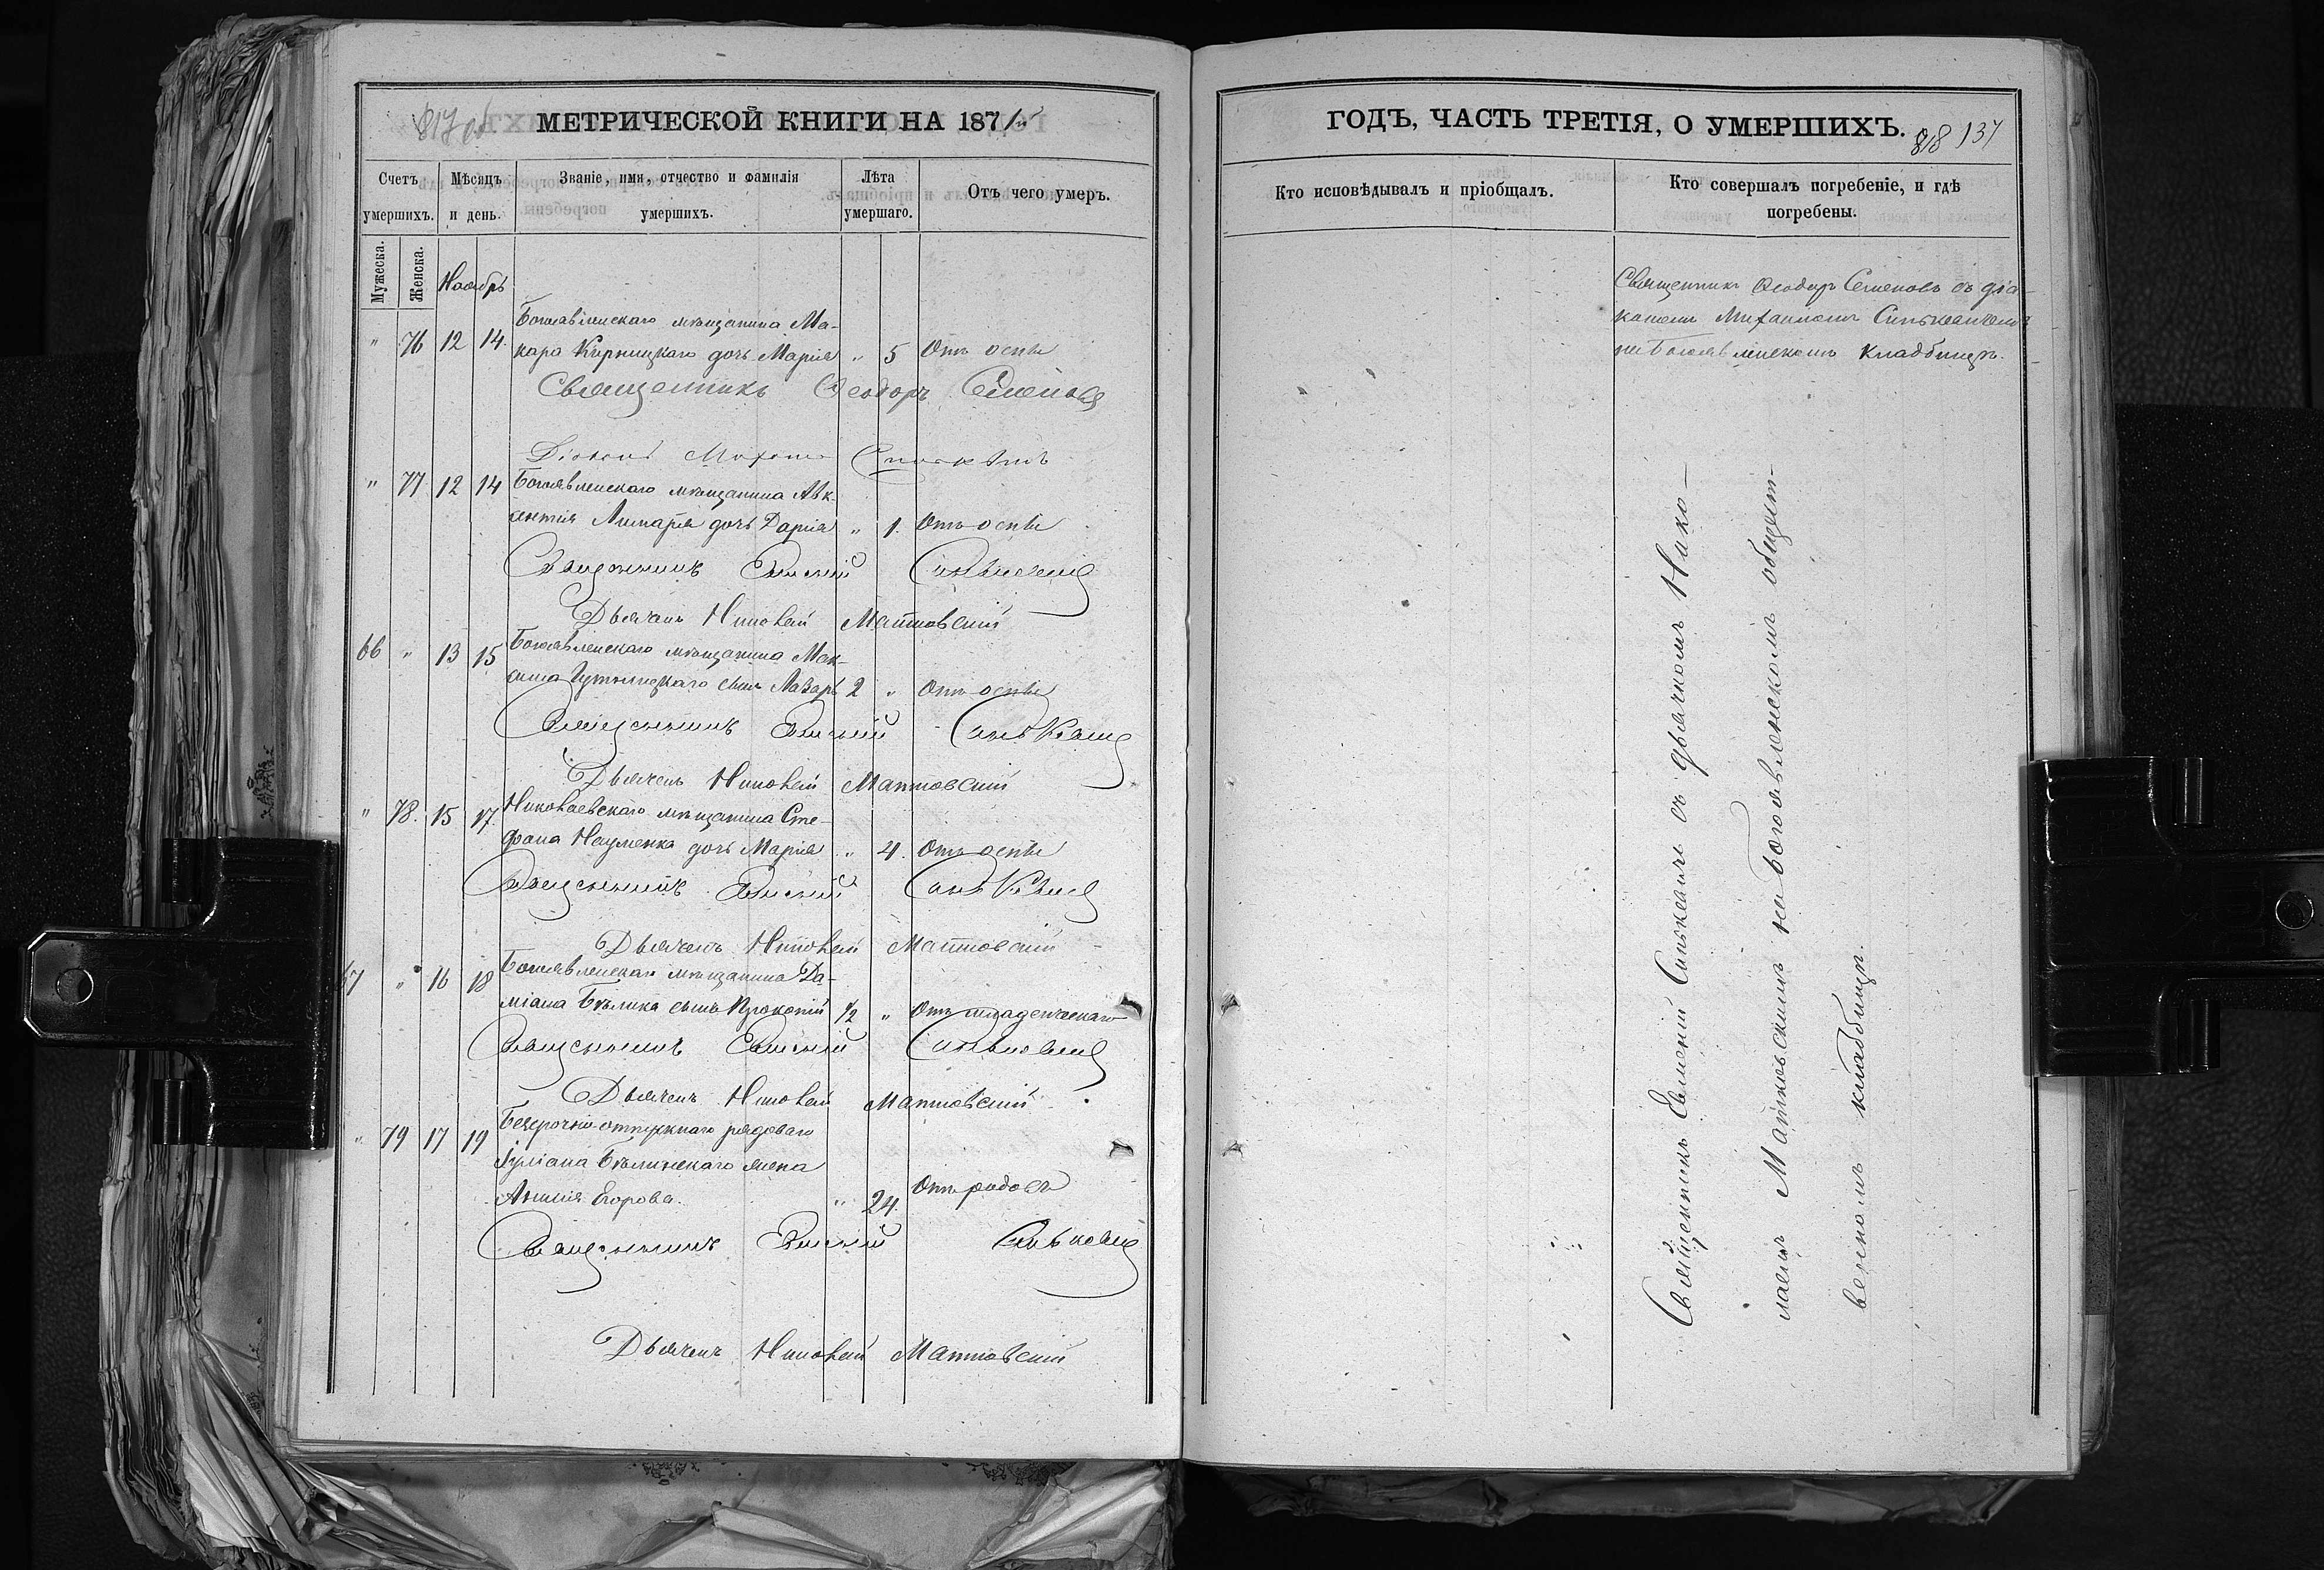 817 об
МЕТРИЧЕСКОЙ КНИГИ НА 1871
Счетъ умершихъ.
Мѣсяцъ и день.
Званіе, имя, отчество и фамилія умершихъ.
Лѣта умершаго.
Отъ чего умеръ.
Мужеска.
Женска.
Ноябрь
Богоявленскаго мѣщанина Ма-
" 76 12 14. кара Кирницкаго дочь Марія " 5 Отъ оспы
Священникъ Ѳеодоръ Семеновъ
Діаконъ Михаилъ Синькевичъ
" 77 12 14 Богоявленскаго мѣщанина Авк-
сентія дочь Дарія " 1. Отъ оспы
Священникъ Евменій Синькевичъ
Дьячекъ Николай Матковскій
66 " 13 15 Богоявленскаго мѣщанина Мак-
сима сынъ Лазарь 2 " Отъ оспы
Священникъ Евменій Синькевичъ
Дьячекъ Николай Матковскій
" 78. 15 17. Николаевскаго мѣщанина Сте-
фана Науменка дочь Марія " 4. Отъ оспы
Священникъ Евменій Синькевичъ
Дьячекъ Николай Матковскій
67 " 16 18 Богоявленскаго мѣщанина Да-
міана Бѣлика сынъ Прокопій 1/2 " Отъ младенческаго
Священникъ Евменій Синькевичъ
Дьячекъ Николай Матковскій
" 79 17 19 Безсрочно-отпускнаго рядоваго
Іуліана Бѣлинскаго жена
Анисія Егорова. " 24. Отъ родовъ
Священникъ Евменій Синькевичъ
Дьячекъ Николай Матковскій
ГОДЪ, ЧАСТЬ ТРЕТІЯ, О УМЕРШИХЪ.
818 137
Кто исповѣдывалъ и пріобщалъ.
Кто совершалъ погребеніе, и гдѣ погребены.
Священникъ Ѳеодоръ Семеновъ съ діа-
кономъ Михаиломъ Синькевичемъ
на Богоявленскомъ кладбищѣ.
Священникъ Евменій Синькевичъ съ дьячкомъ Нико-
лаемъ Матковскимъ на Богоявленскомъ общест-
венномъ кладбищѣ.